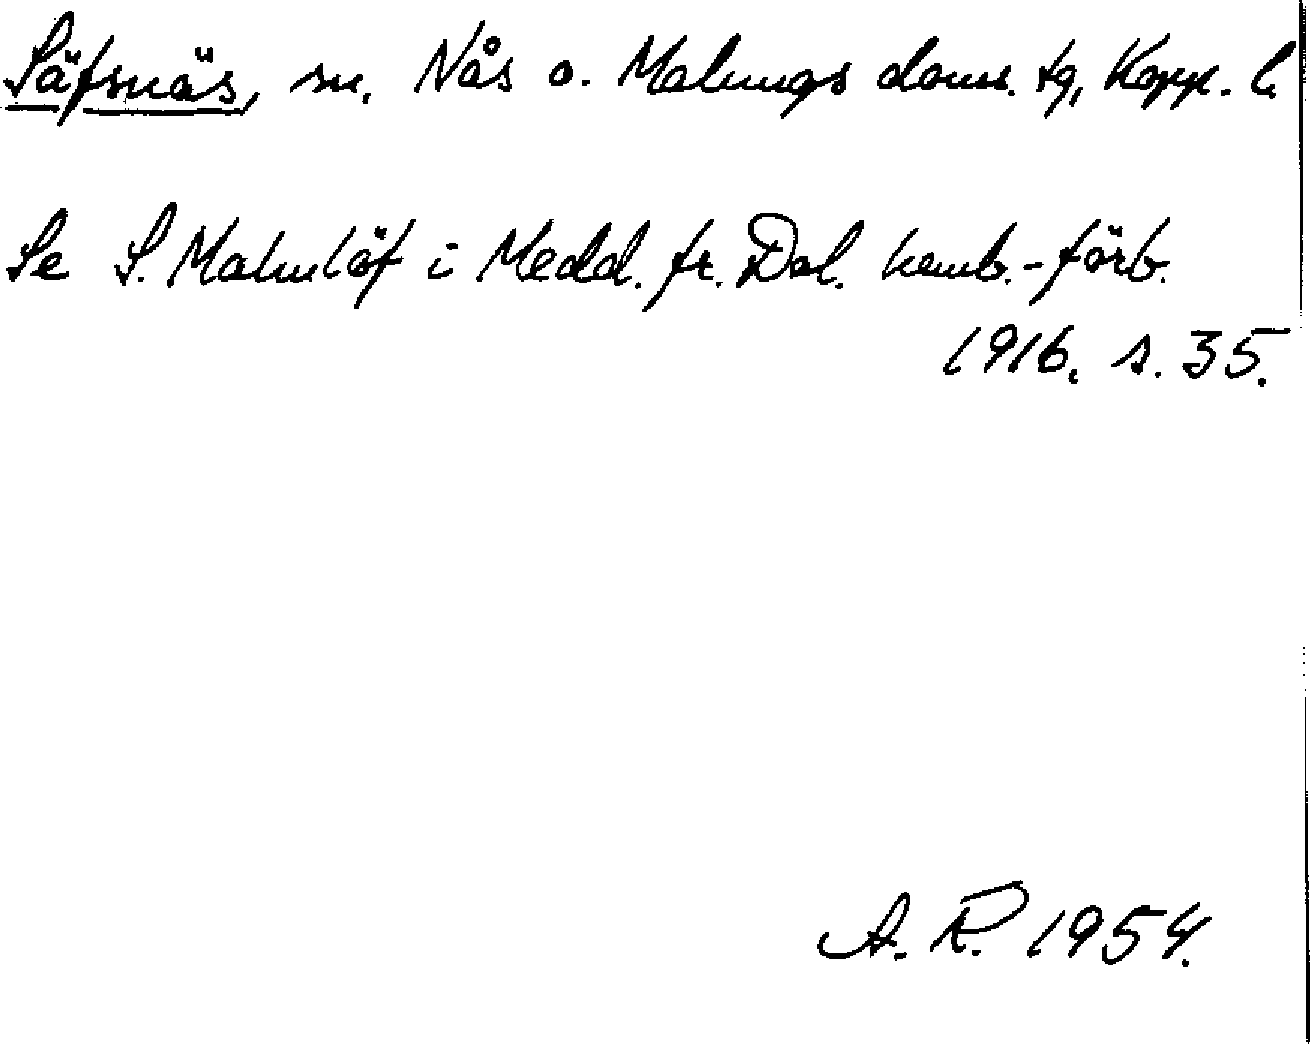 Säfsnäs, sn. Nås o. Malungs doms. tg, Kopp. l.
Se S. Malmlöf i Medd. fr. Dal. hemb.-förb.
1916. s. 35.
A. R. 1954.